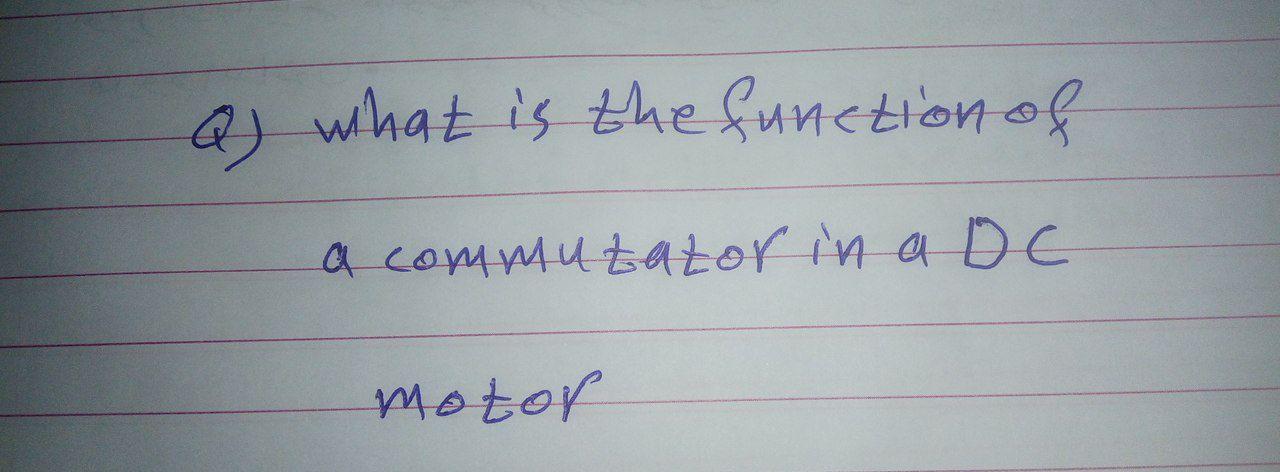 Q) what is the function of
a commutator in a DC
motor